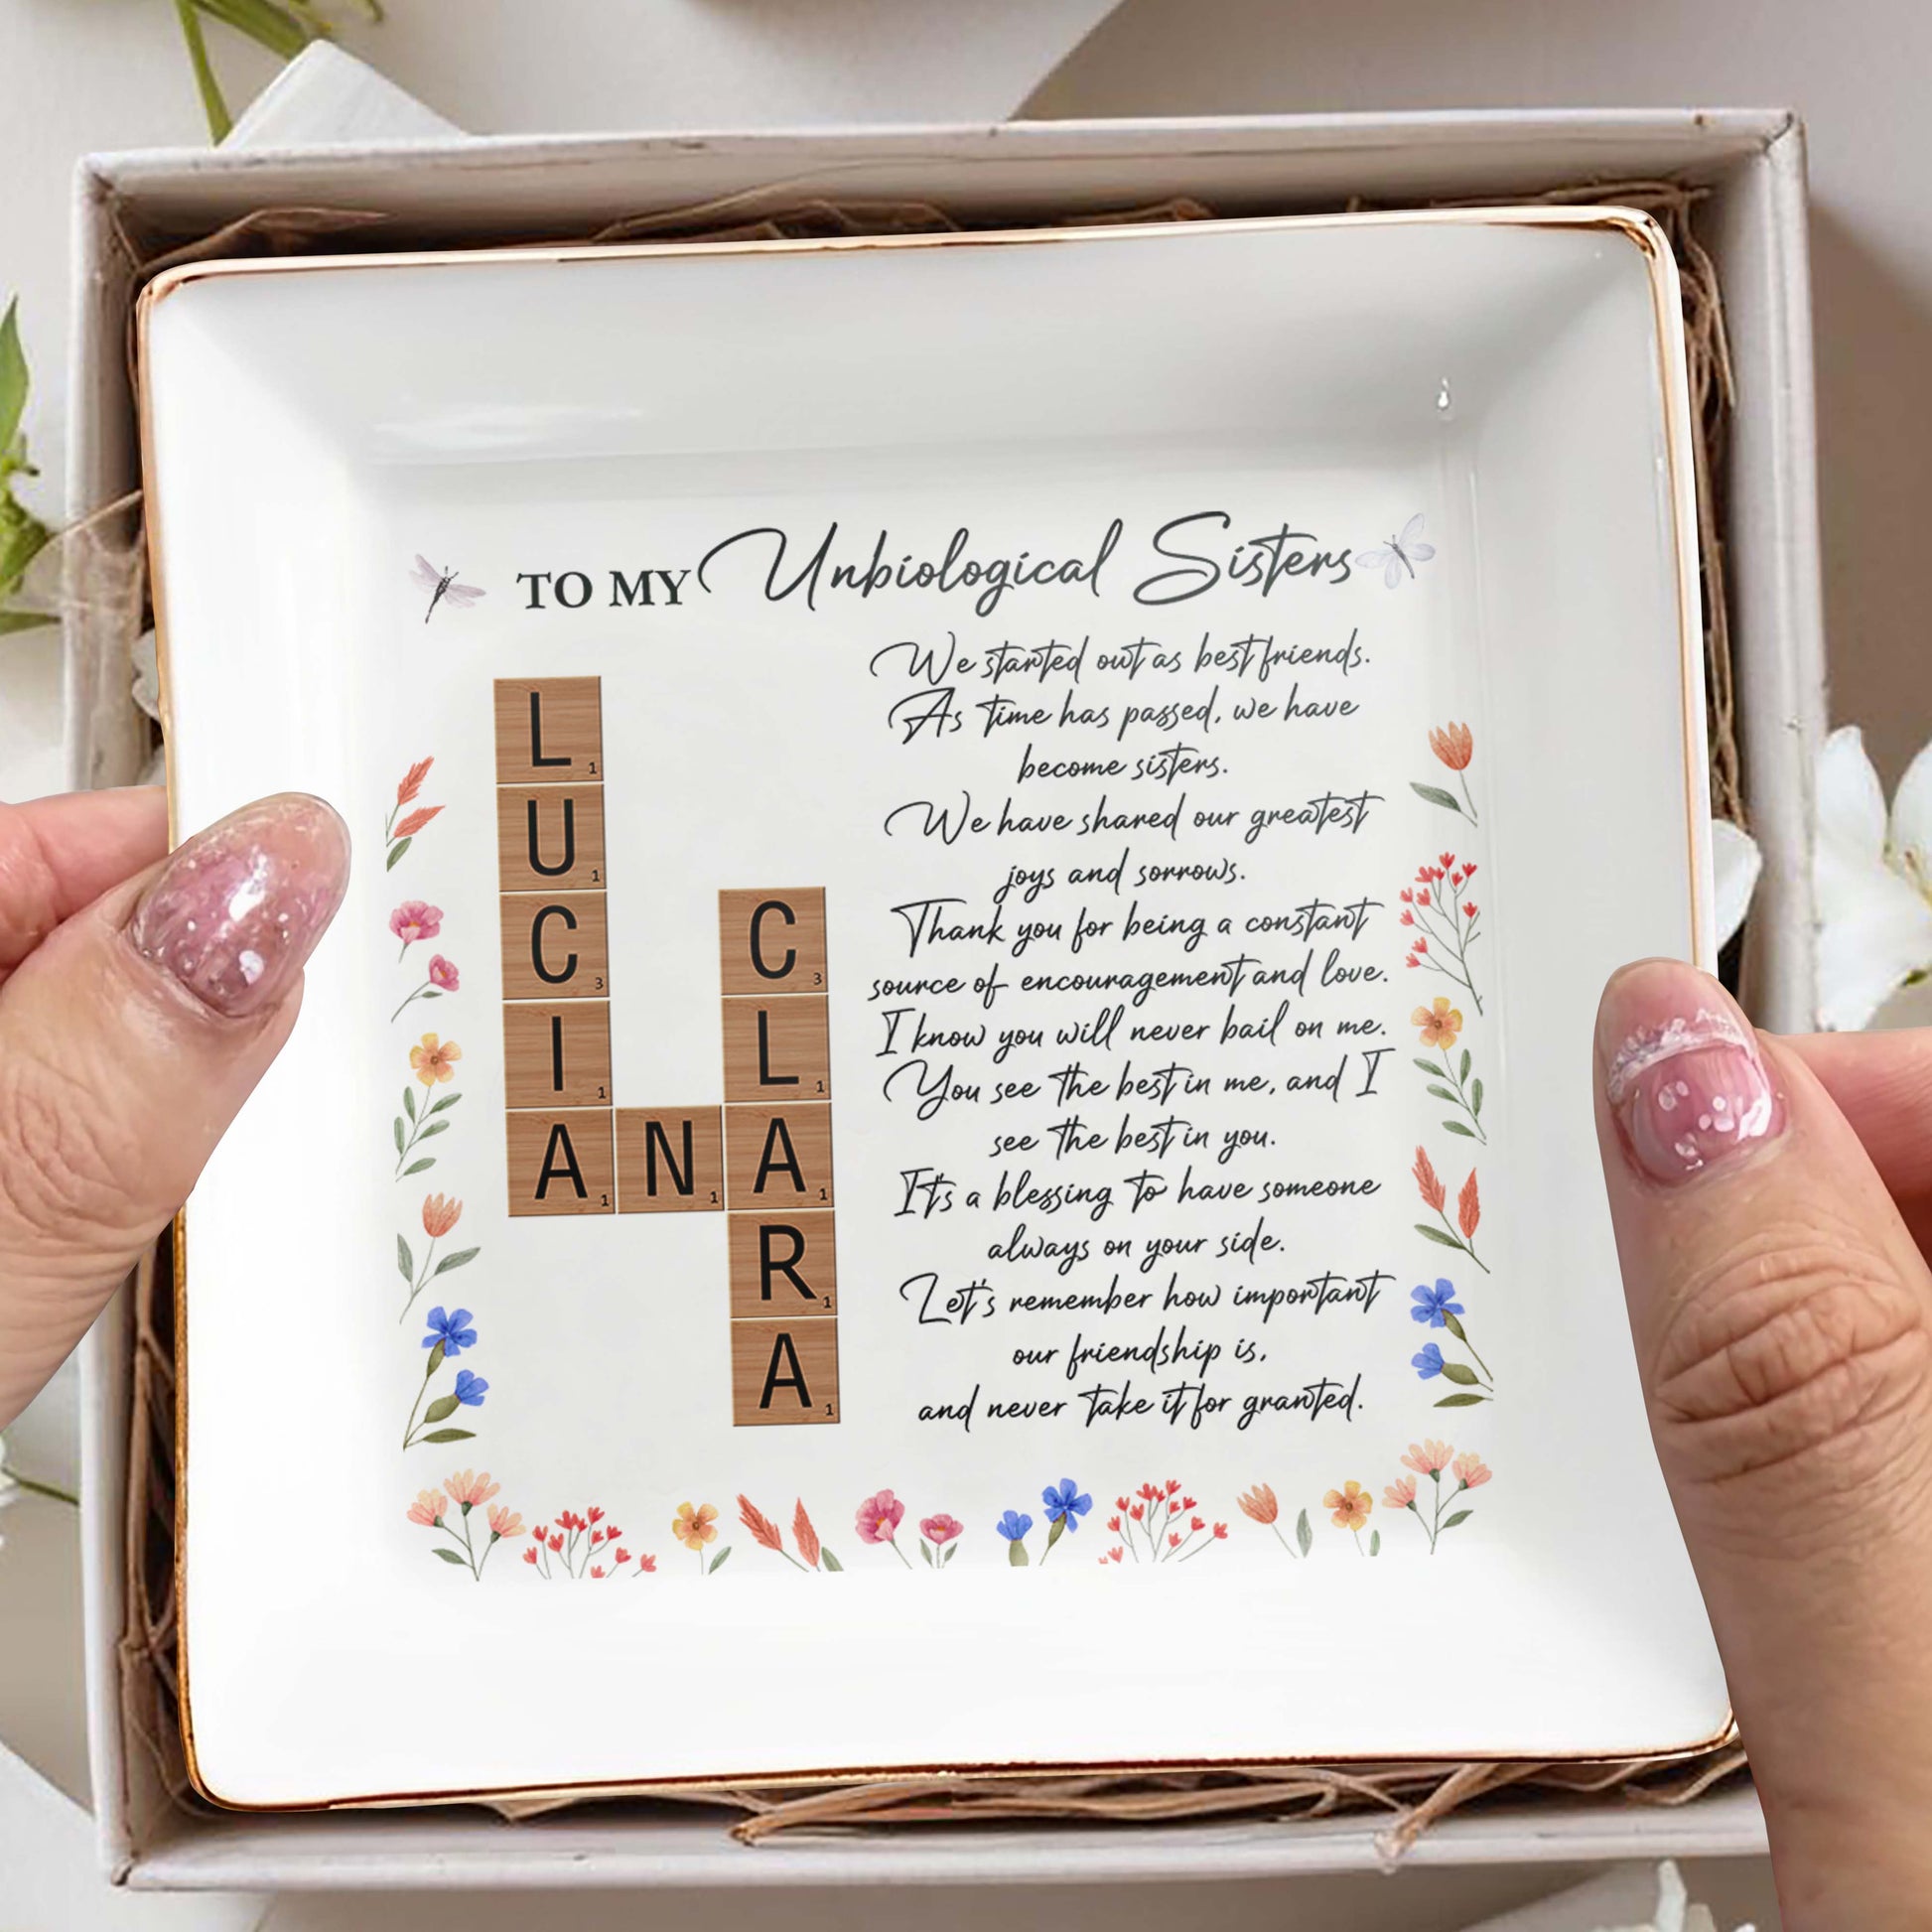 TO MY Unbiological Sisters
We started out as best friends.
As time has passed, we have
become sisters.
We have shared our greatest
joys and sorrows.
Thank you for being a constant
source of encouragement and love.
I know you will never bail on me.
You see the best in me, and I
see the best in you.
It's a blessing to have someone
always on your side.
Let's remember how important
our friendship is,
and never take it for granted.
L1
U1
C3
I1
A1 N1 A1
C3
L1
R1
A1